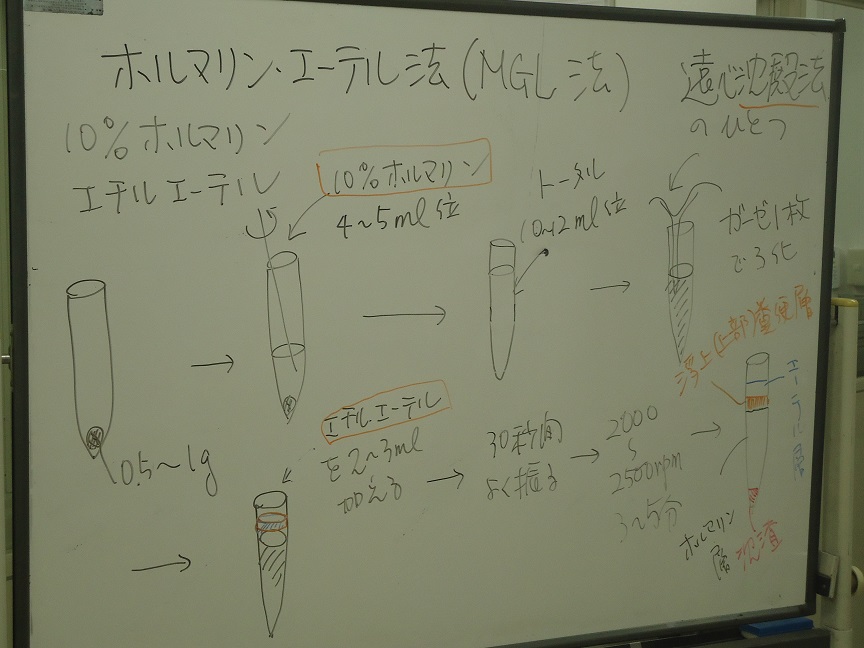 ホルマリン・エーテル法(MGL法)
遠心沈殿法
のひとつ
10%ホルマリン
エチルエーテル
10%ホルマリン
4~5ml位
トータル
10~12ml位
ガーゼ1枚
でろ化
0.5~1g
エチルエーテル
を2~3ml
加える
30秒間
よく振る
2000
~
2500rpm
3~5分
浮上(上部)糞便層
エーテル層
ホルマリン
層
沈渣